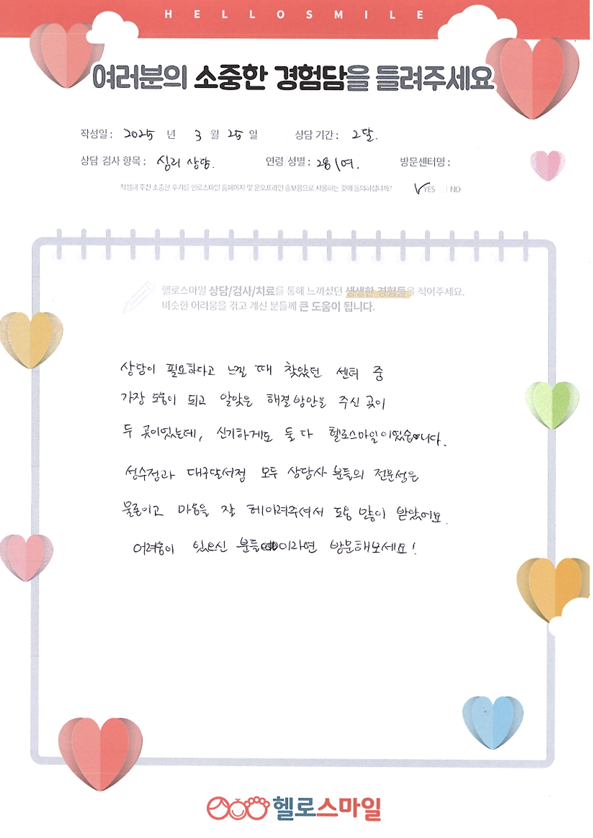 HELLOSMILE
여러분의 소중한 경험담을 들려주세요
작성일 : 2025 년 3 월 25 일 상담 기간 : 2달.
상담 검사 항목 : 심리 상담. 연령 성별 : 28/여. 방문센터명 :
작성해 주신 소중한 수기를 헬로스마일 홈페이지 및 온오프라인 홍보용으로 사용하는 것에 동의하십니까? YES NO
헬로스마일 상담/검사/치료를 통해 느끼셨던 생생한 경험들을 적어주세요.
비슷한 어려움을 겪고 계신 분들께 큰 도움이 됩니다.
상담이 필요하다고 느낄 때 찾았던 센터 중
가장 도움이 되고 알맞은 해결방안을 주신 곳이
두 곳이있는데, 신기하게도 둘 다 헬로스마일이었습니다.
성수점과 대구달서점 모두 상담사 분들의 전문성은
물론이고 마음을 잘 헤아려주셔서 도움 많이 받았어요.
어려움이 있으신 분들이라면 방문해보세요!
헬로스마일